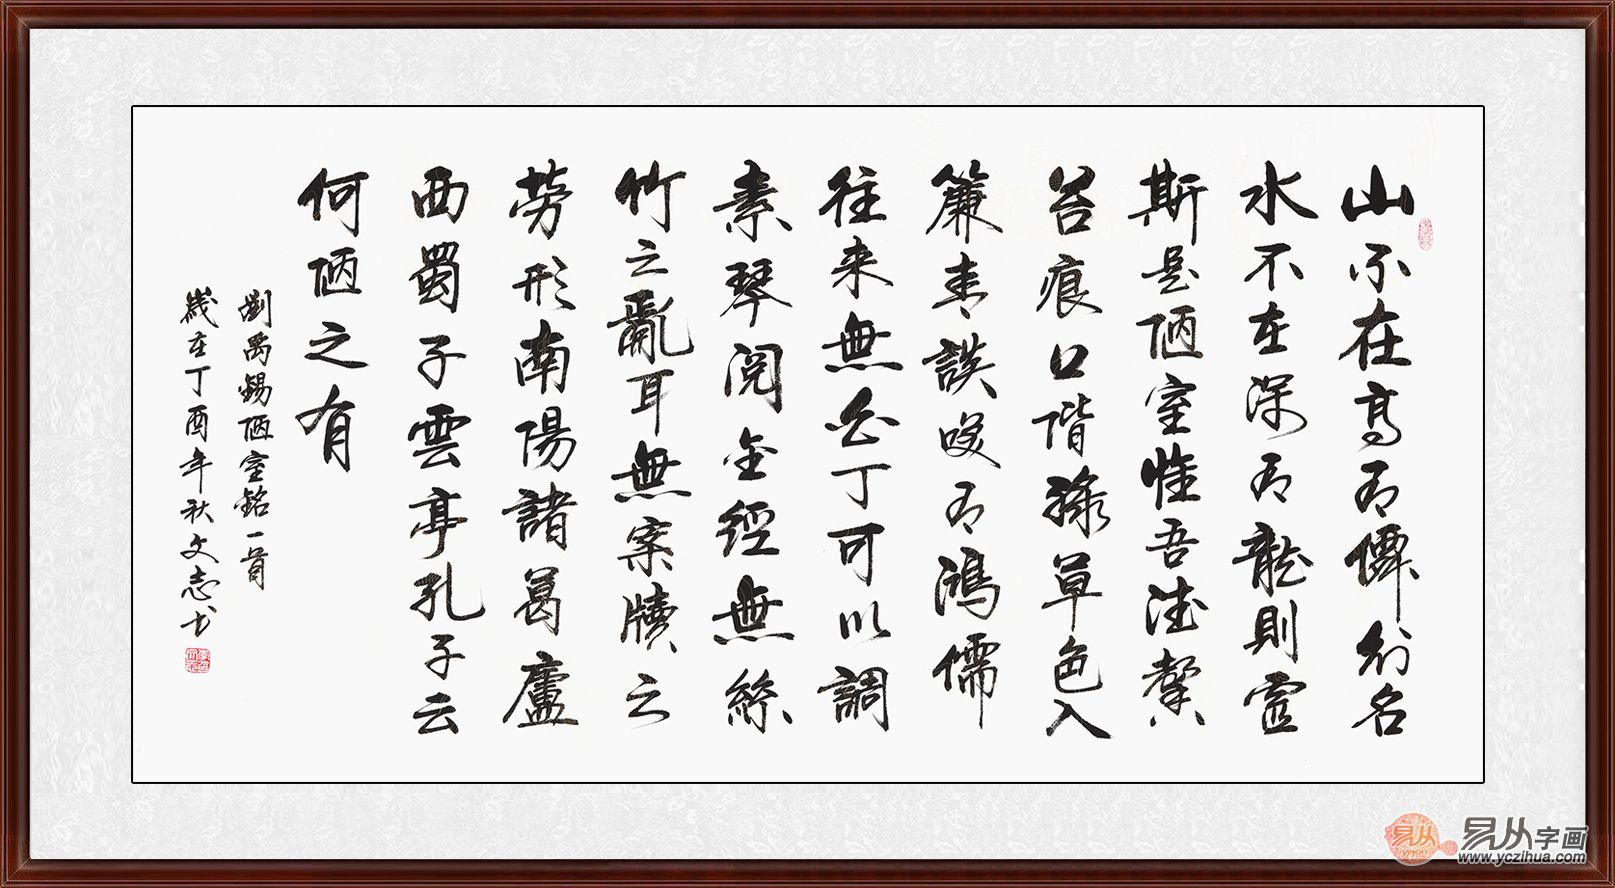 山不在高有僊則名
水不在深有龍則靈
斯是陋室惟吾德馨
苔痕口階綠草色入
簾青談笑有鴻儒
往来無白丁可以調
素琴閱金經無絲
竹之亂耳無案牘之
勞形南陽諸葛廬
西蜀子雲亭孔子云
何陋之有
劉禹錫陋室銘一首
歲在丁酉年秋文志书
易从字画
www.yczihua.com